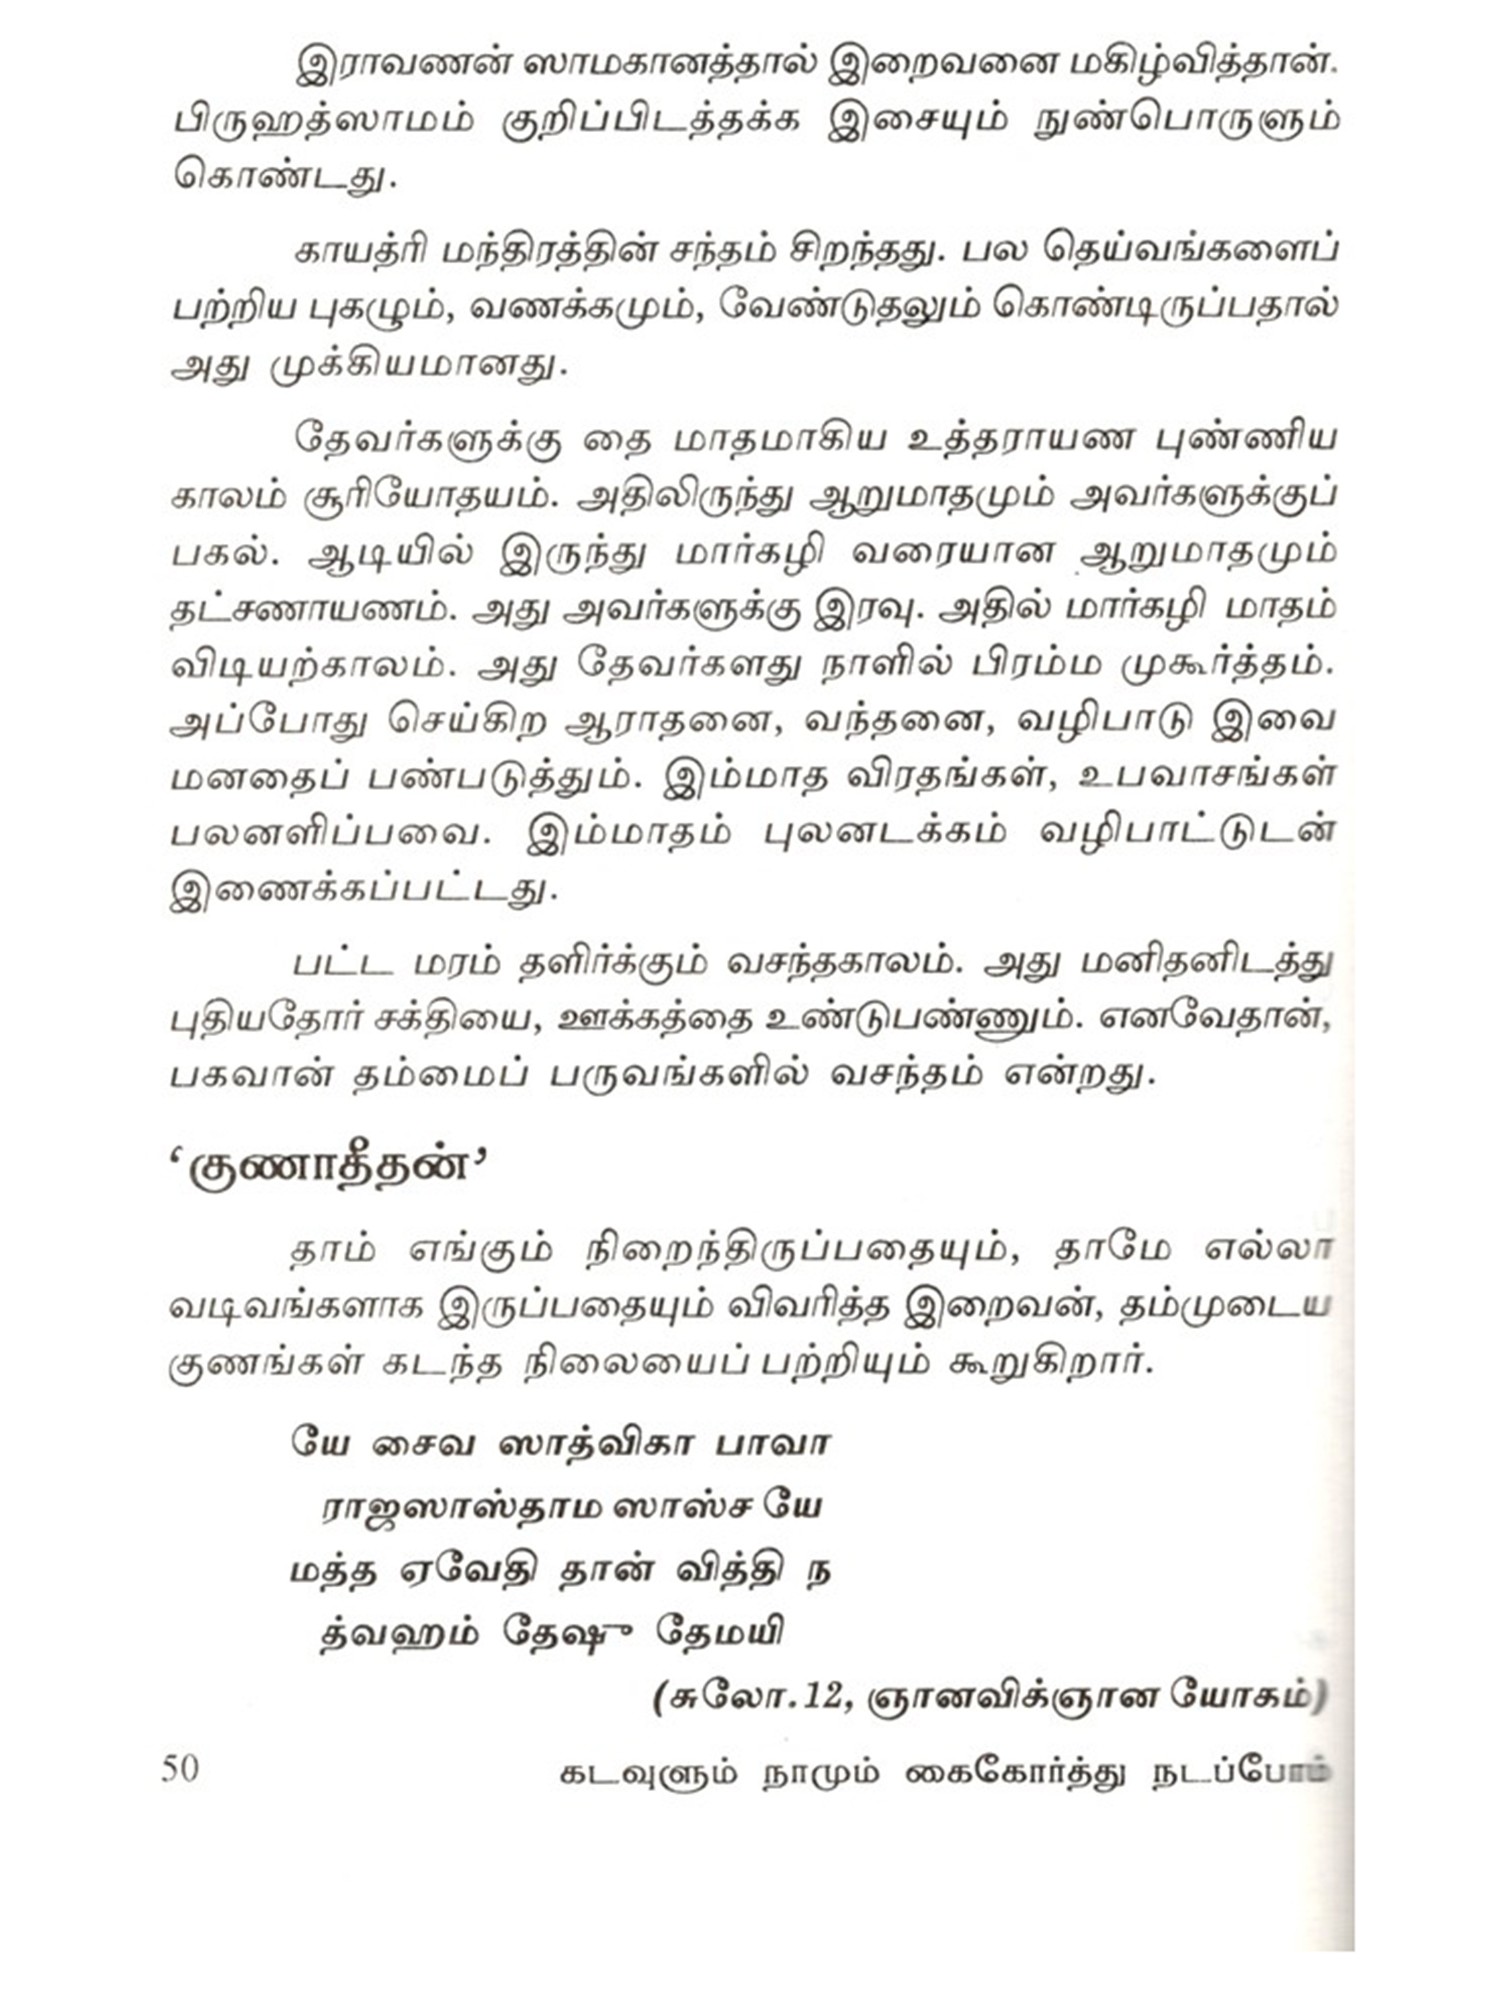 இராவணன் ஸாமகானத்தால் இறைவனை மகிழ்வித்தான்.
பிருஹத்ஸாமம் குறிப்பிடத்தக்க இசையும் நுண்பொருளும்
கொண்டது.
காயத்ரி மந்திரத்தின் சந்தம் சிறந்தது. பல தெய்வங்களைப்
பற்றிய புகழும், வணக்கமும், வேண்டுதலும் கொண்டிருப்பதால்
அது முக்கியமானது.
தேவர்களுக்கு தை மாதமாகிய உத்தராயண புண்ணிய
காலம் சூரியோதயம். அதிலிருந்து ஆறுமாதமும் அவர்களுக்குப்
பகல். ஆடியில் இருந்து மார்கழி வரையான ஆறுமாதமும்
தட்சணாயணம். அது அவர்களுக்கு இரவு. அதில் மார்கழி மாதம்
விடியற்காலம். அது தேவர்களது நாளில் பிரம்ம முகூர்த்தம்.
அப்போது செய்கிற ஆராதனை, வந்தனை, வழிபாடு இவை
மனதைப் பண்படுத்தும். இம்மாத விரதங்கள், உபவாசங்கள்
பலனளிப்பவை. இம்மாதம் புலனடக்கம் வழிபாட்டுடன்
இணைக்கப்பட்டது.
பட்ட மரம் தளிர்க்கும் வசந்தகாலம். அது மனிதனிடத்து
புதியதோர் சக்தியை, ஊக்கத்தை உண்டுபண்ணும். எனவேதான்,
பகவான் தம்மைப் பருவங்களில் வசந்தம் என்றது.
‘குணாதீதன்’
தாம் எங்கும் நிறைந்திருப்பதையும், தாமே எல்லா
வடிவங்களாக இருப்பதையும் விவரித்த இறைவன், தம்முடைய
குணங்கள் கடந்த நிலையைப் பற்றியும் கூறுகிறார்.
யே சைவ ஸாத்விகா பாவா
ராஜஸாஸ்தாம ஸாஸ்ச யே
மத்த ஏவேதி தான் வித்தி ந
த்வஹம் தேஷு தேமயி
(சுலோ.12, ஞானவிக்ஞான யோகம்)
50 கடவுளும் நாமும் கைகோர்த்து நடப்போம்